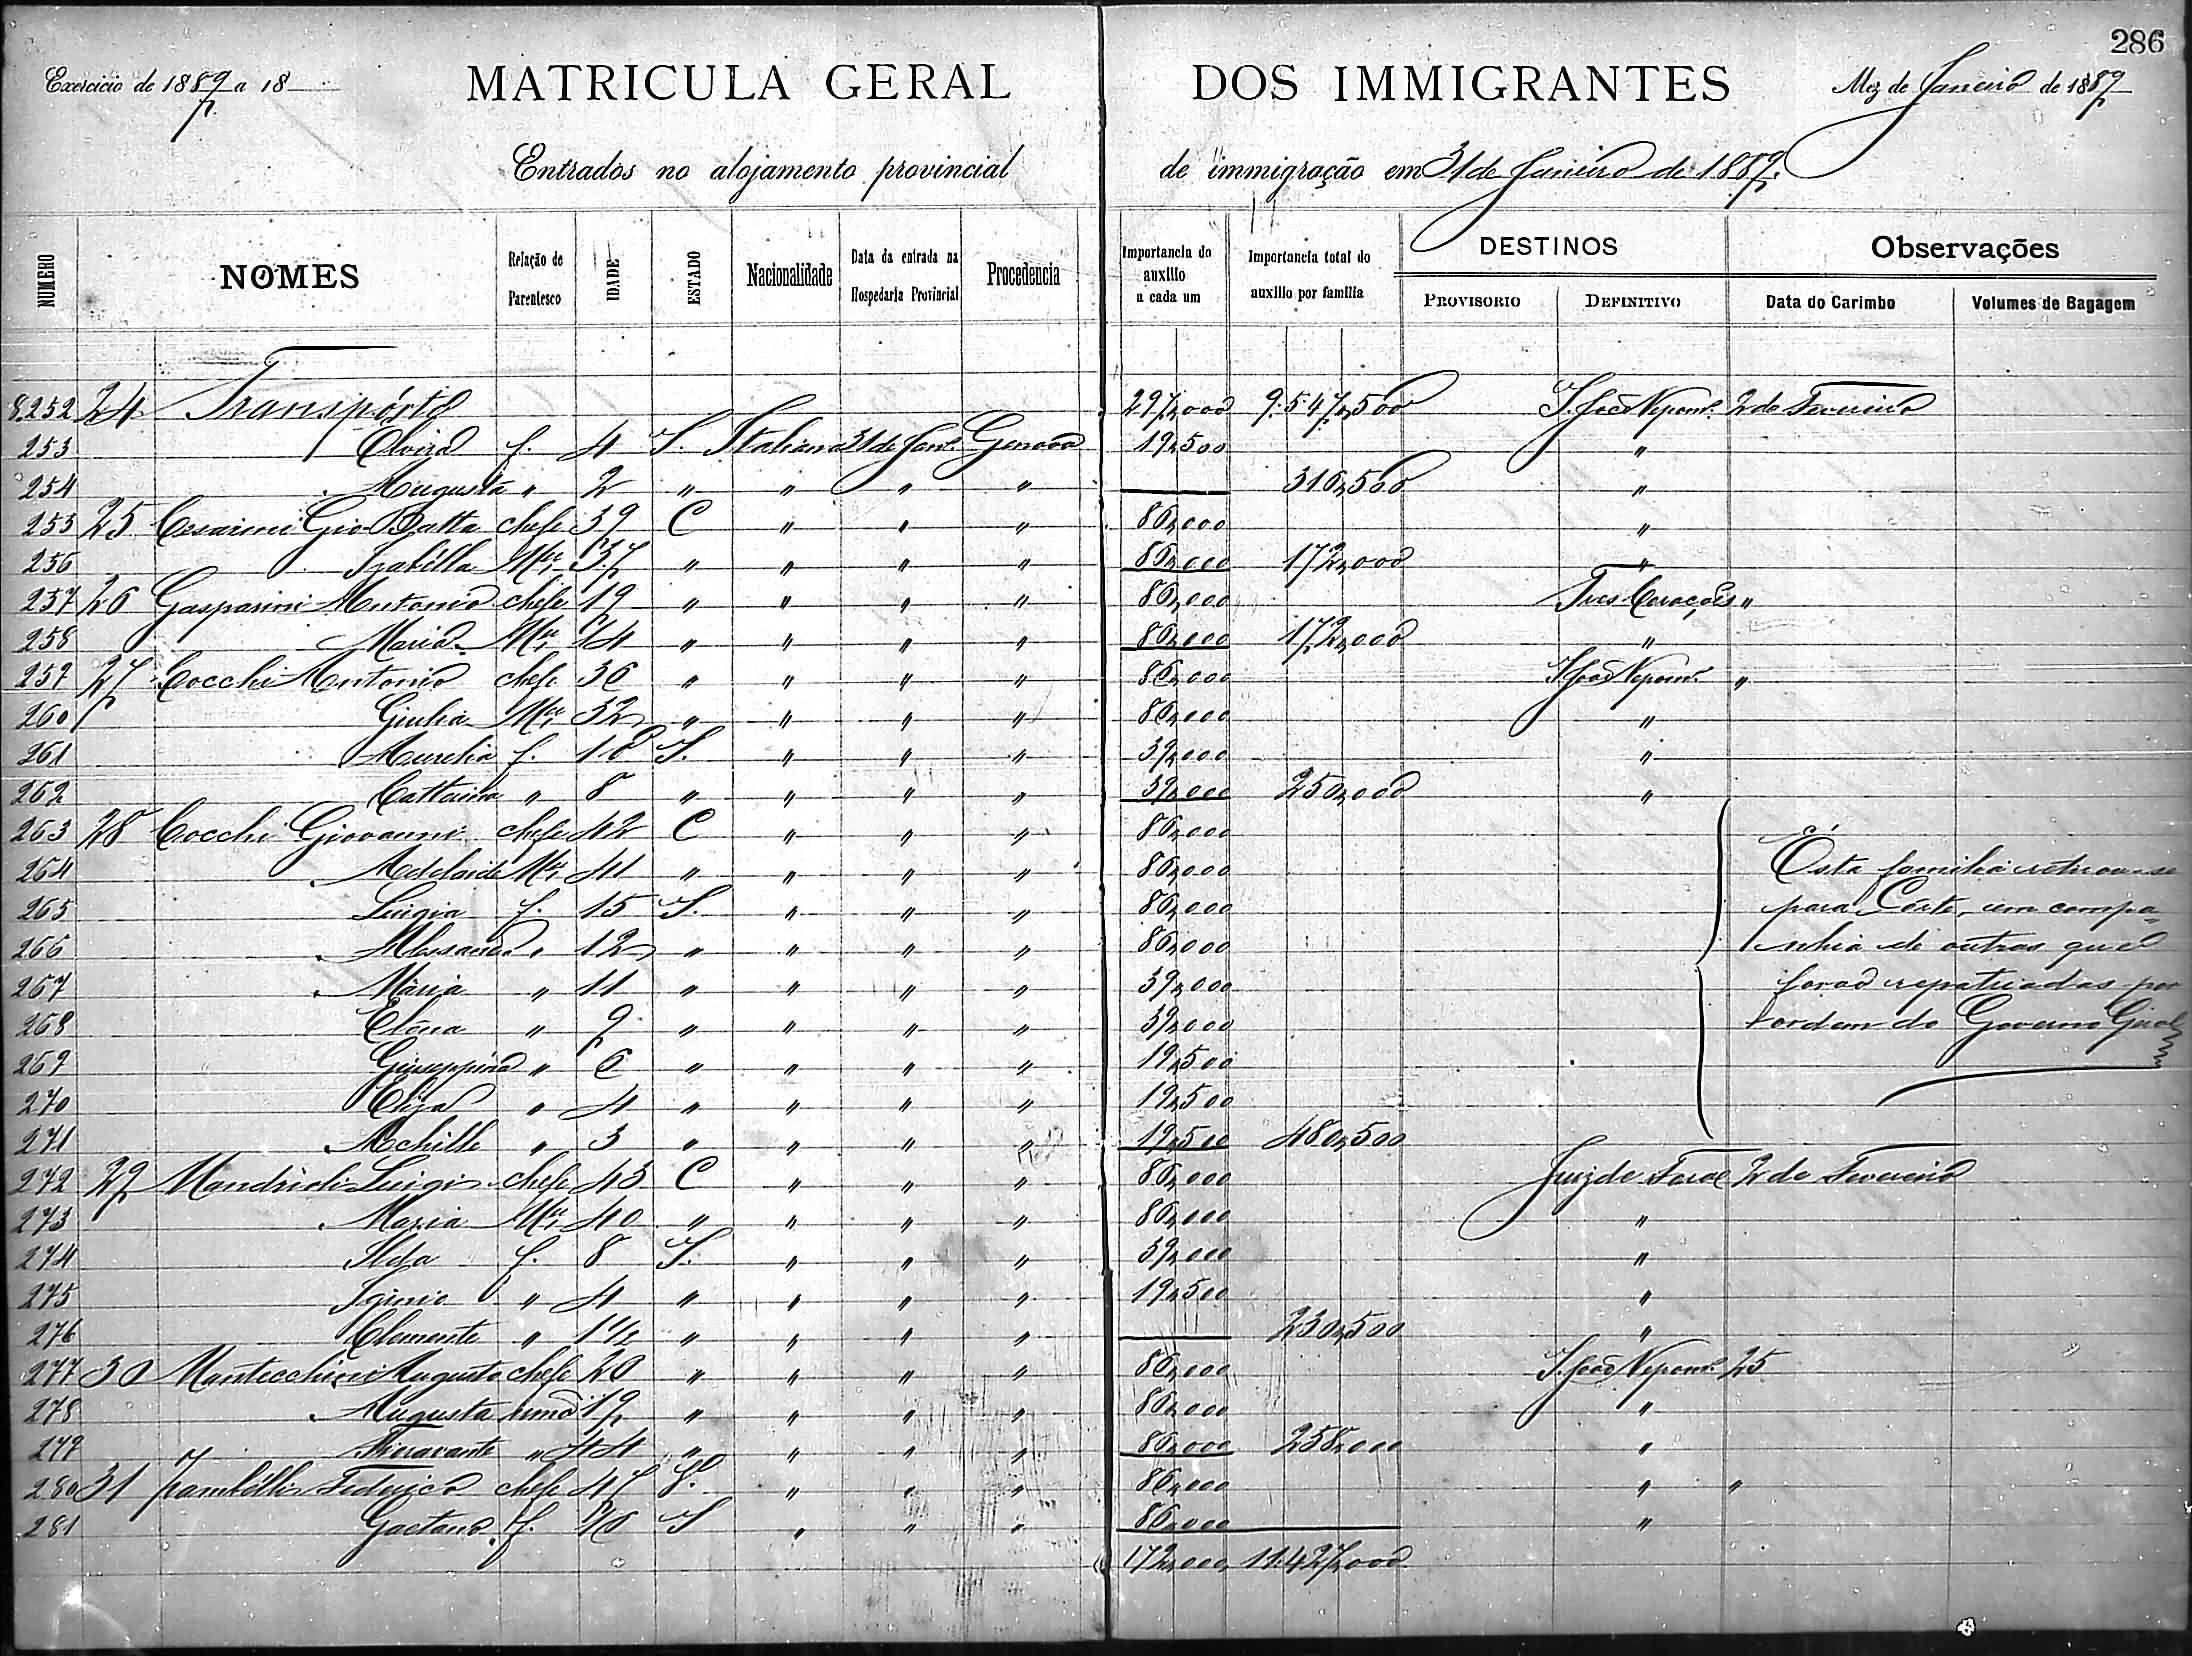 286
Exercicio de 1889 a 18
MATRICULA GERAL DOS IMMIGRANTES
Mez de Janeiro de 1889
Entrados no alojamento provincial de immigração em 31 de Janeiro de 1889.
NUMERO NOMES Relação de Parentesco IDADE ESTADO Nacionalidade Data da entrada na Hospedaria Provincial Procedencia Importancia do auxilio a cada um Importancia total do auxilio por familia DESTINOS PROVISORIO DEFINITIVO Observações Data do Carimbo Volumes de Bagagem
8252 24 Transpórto 297,000 9:547,500 S. João Nepom. 2 de Fevereiro
253 Elvira f. 4 S. Italiana 31 de Jan. Genova 19,500 "
254 Augusta " 2 " " " " 316,500 "
253 25 Gio Batta chefe 39 C " " " 86,000 "
256 Izabella Mer 37 " " " " 86,000 172,000 "
257 26 Gasparini Antonio chefe 19 " " " " 86,000 Tres Corações "
258 Maria Mer 24 " " " " 86,000 172,000 "
259 27 Cocchi Antonio chefe 36 " " " " 86,000 S. João Nepom. "
260 Giulia Mer 32 " " " " 86,000 "
261 Aurelia f. 10 S. " " " 39,000 "
262 Catterina " 8 " " " " 39,000 250,000 "
263 28 Cocchi Giovanni chefe 42 C " " " 86,000
264 Adelaide Mer 41 " " " " 86,000 Esta familia retirou-se
265 Luigia f. 15 S. " " " 86,000 para Côrte, em compa-
266 " 12 " " " " 86,000 nhia de outras que
267 Maria " 11 " " " " 39,000 forão repatriadas por
268 Elena " 9 " " " " 39,000 ordem do Governo Geral
269 Giuseppina " 6 " " " " 19,500
270 Eliza " 4 " " " " 19,500
271 Achille " 3 " " " " 19,500 480,500
272 29 Mandrioli Luigi chefe 43 C " " " 86,000 Juiz de Fora 2 de Fevereiro
273 Maria Mer 40 " " " " 86,000 "
274 Ilda f. 8 S. " " " 39,000 "
275 Iginio " 4 " " " " 19,500 "
276 Clemente " 1 1/2 " " " " 230,500 "
277 30 Mantecchini Augusto chefe 20 " " " " 86,000 S. João Nepom. 25
278 Augusta irmã 19 " " " " 86,000 "
279 Fioravante " 44 " " " " 86,000 258,000 "
280 31 Zambélli Federico chefe 47 " " " 86,000 " "
281 Gaetano f. S " " " 86,000 "
172,000 11:427,000